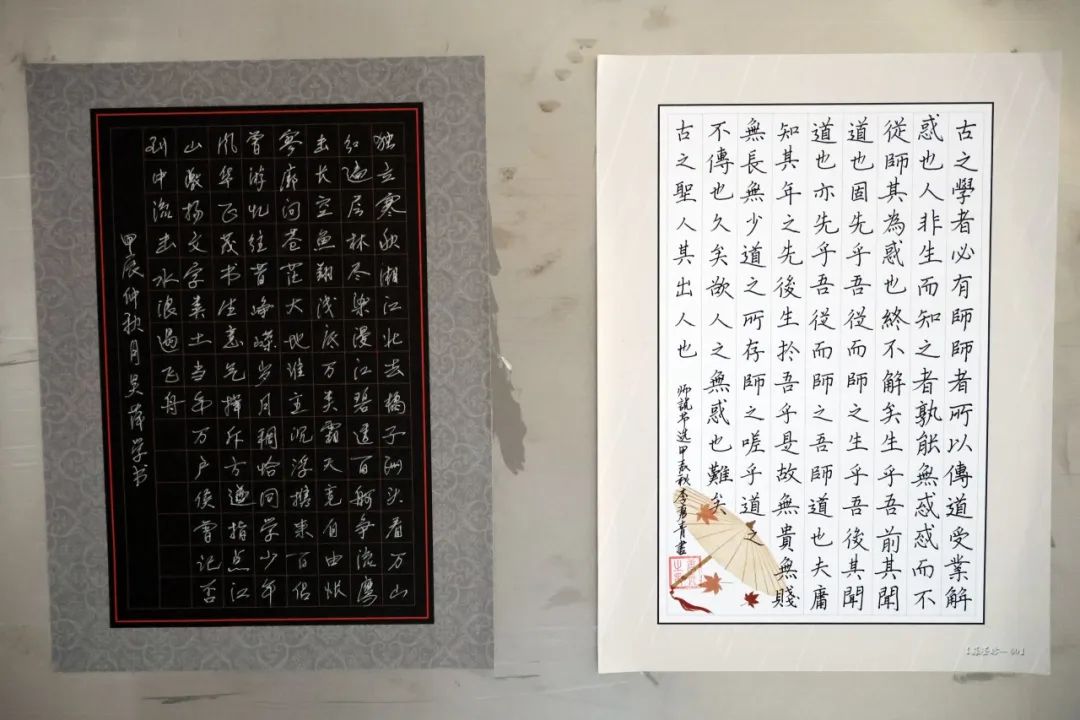 独立寒秋湘江北去橘子洲头看万山
红遍层林尽染漫江碧透百舸争流鹰
击长空鱼翔浅底万类霜天竞自由怅
寥廓问苍茫大地谁主沉浮携来百侣
曾游忆往昔峥嵘岁月稠恰同学少年
风华正茂书生意气挥斥方遒指点江
山激扬文字粪土当年万户侯曾记否
到中流击水浪遏飞舟
甲辰仲秋月吴萍学书
古之學者必有師師者所以傳道受業解
惑也人非生而知之者孰能無惑惑而不
從師其為惑也終不解矣生乎吾前其聞
道也固先乎吾從而師之生乎吾後其聞
道也亦先乎吾從而師之吾師道也夫庸
知其年之先後生於吾乎是故無貴無賤
無長無少道之所存師之嗟乎道之
不傳也久矣欲人之無惑也難矣
古之聖人其出人也
师說节选甲辰秋李青書